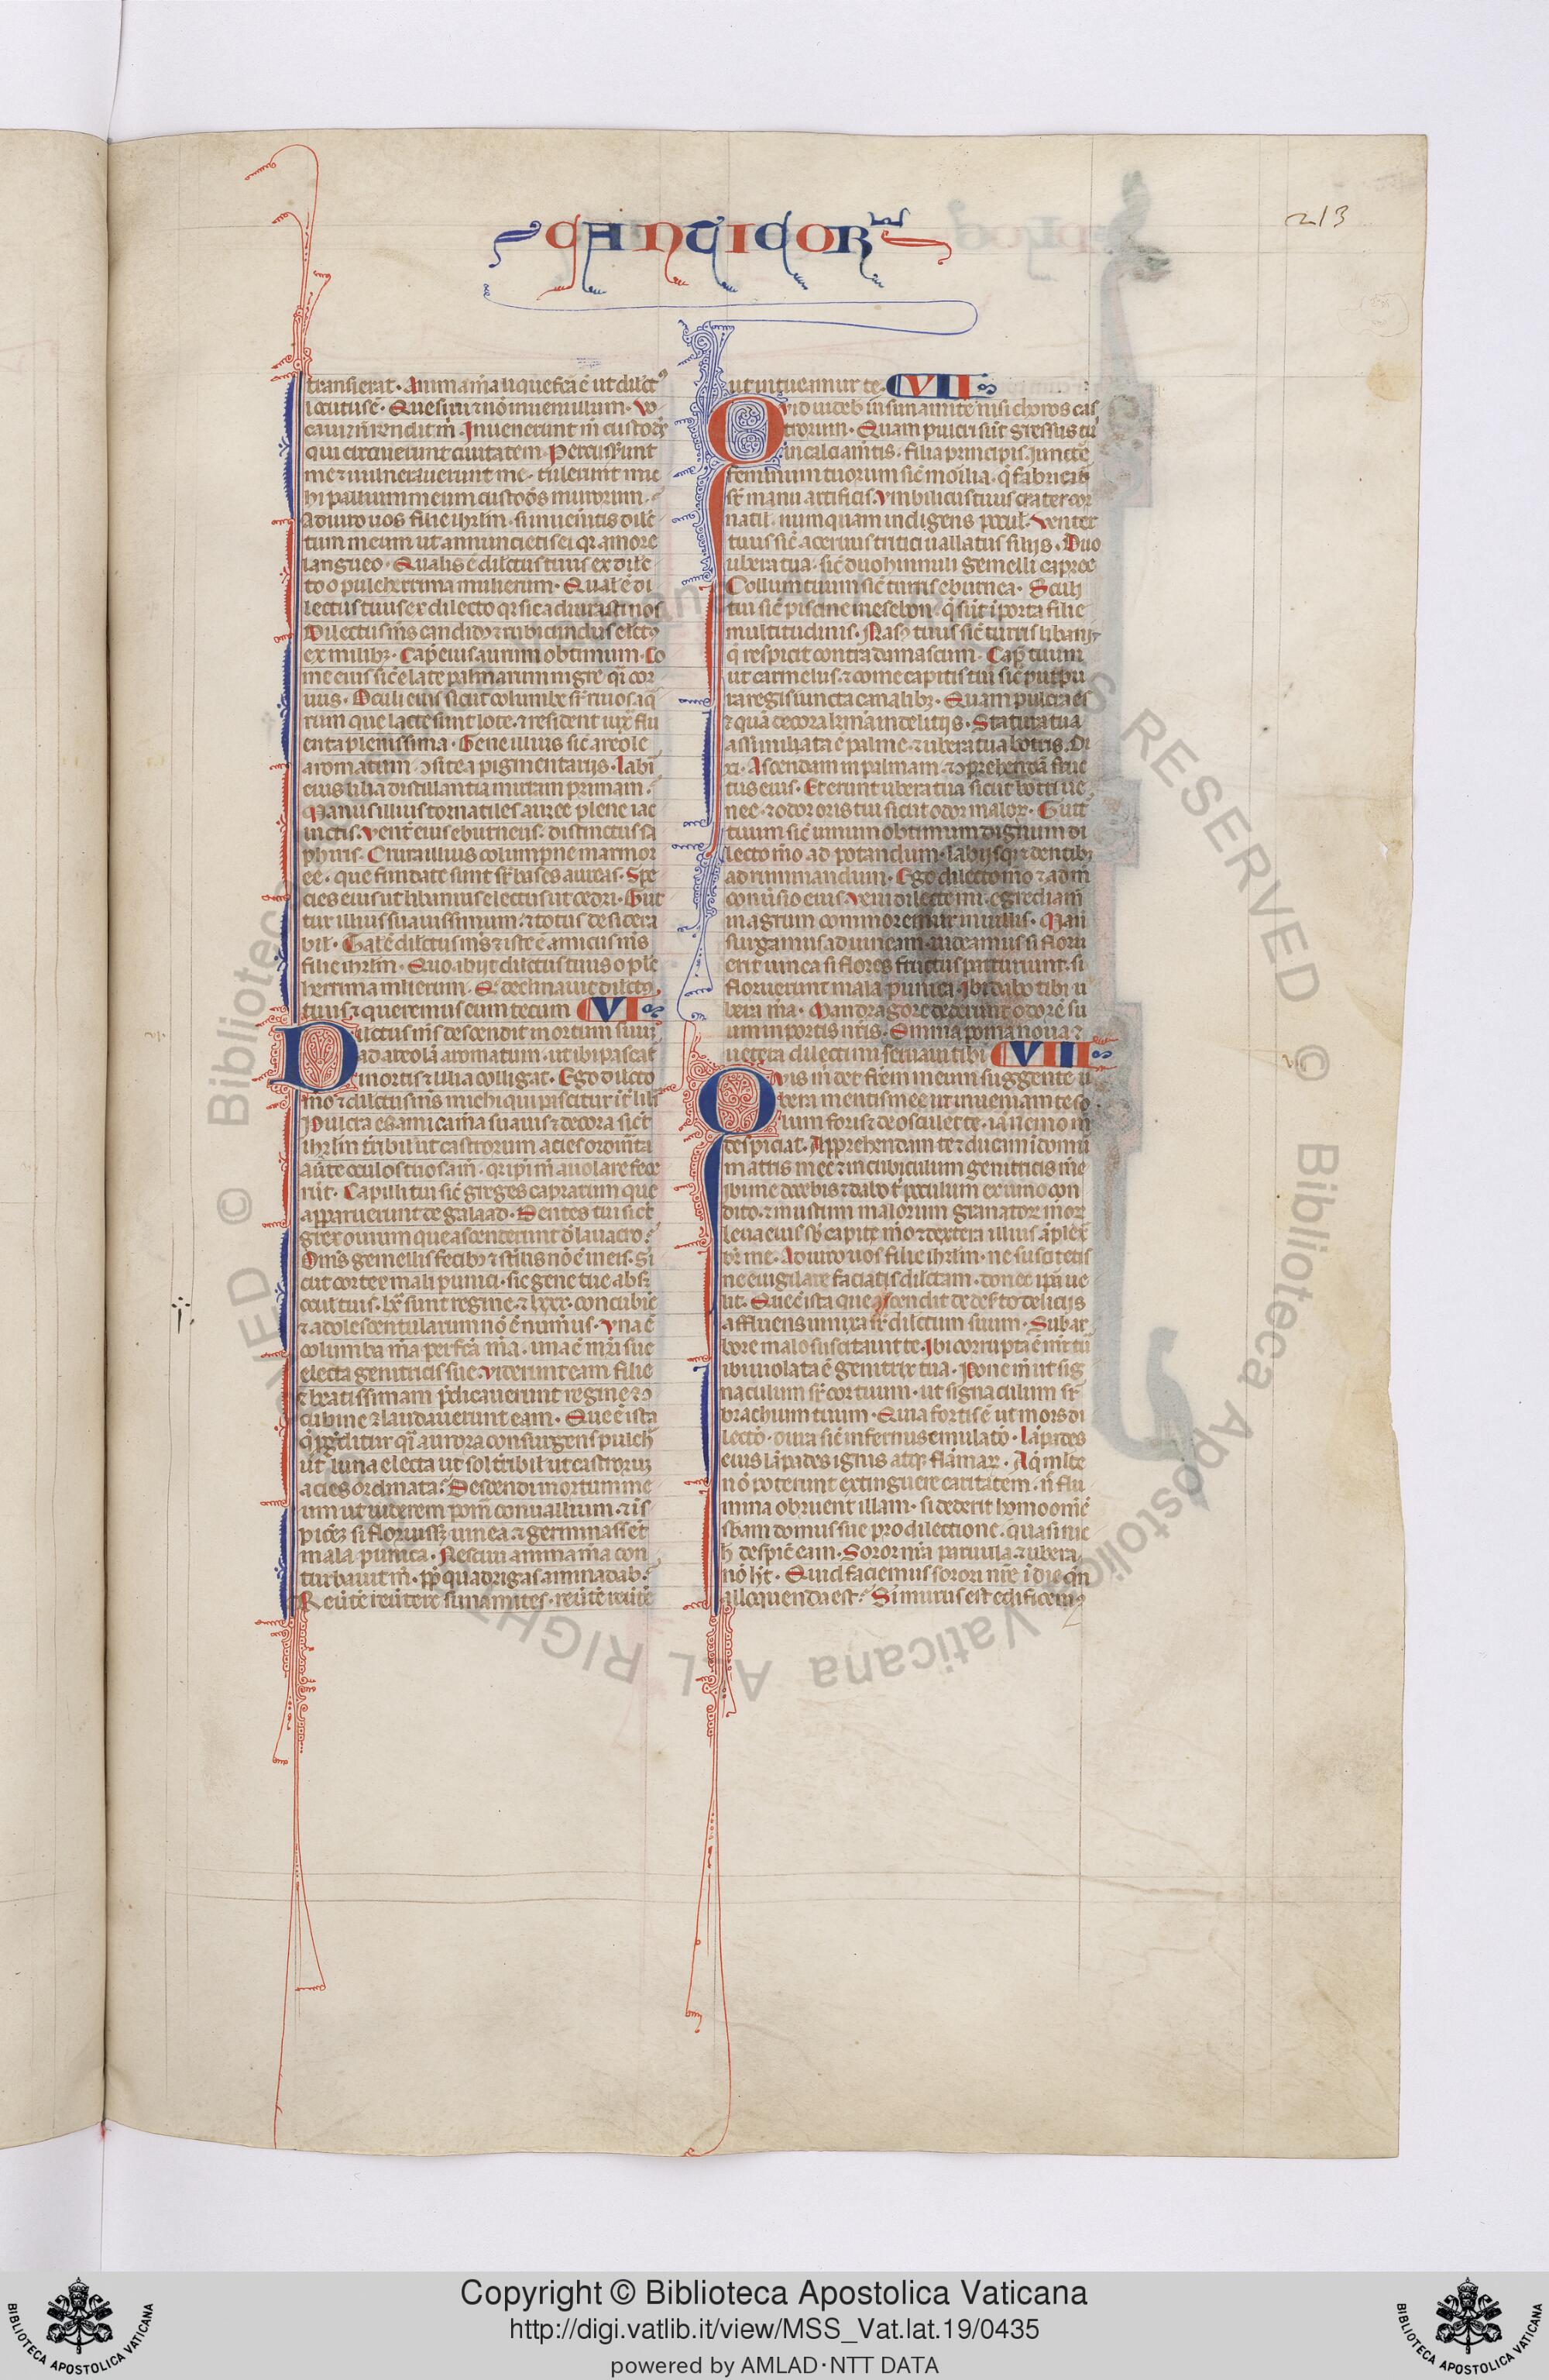 CANTICOR
213
transierat. Anima m̄a liquefc̄a ē ut dilct᷒
locutus ē. Quesiui ⁊ nō inueni illum. Vo
caui ⁊ n̄ rendit m̄. Inuenerunt m̄ custodes
qui circueunt ciuitatem. Percusserunt
me ⁊ uulnerauerunt me. tulerunt mic
hi pallium meum custodes murorum.
adiuro uos filie ihrlm̄. si inueneritis dilc̄
tum meum ut annuncietis ei qr amore
langueo. Qualis ē dilctus tuus ex dilc̄
to o pulcherrima mulierum. Qual ē di
lectus tuus ex dilecto qr sic adiurasti nos
Dilectus m̄s candid᷒ ⁊ rubicundus elect᷒
ex milib᷒. Cap̄ eius aurum obtimum. Co
me eius sic̄ elate palmarum nigre q̄i cor
uus. Oculi eius sicut columbe sr̄ riuos aq̄
rum que lacte sunt lote. ⁊ resident iux̄ flu
enta plenissima. Gene illius sic̄ areole
aromatum ↄsite a pigmentarijs. Labi
eius lilia distillantia mirram primam.
Manus illius tornatiles auree plene iac
inctis. Vent̄ eius eburneus. distinctus sa
phiris. Crura illius columpne marmor
ee. que fundate sunt sr̄ bases aureas. Spe
cies eius ut libanus electus ut cedri. Gut
tur illius suauissimum. ⁊ totus desidera
bil. Tal ē dilctus m̄s ⁊ iste ē amicus m̄s
filie ihrlm̄. Quo abijt dilctus tuus o pulc
herrima mlierum. Q̄ declinauit dilct᷒
tuus ⁊ queremus eum tecum CVI
Dilctus m̄s descendit in ortum suū
ad areolā aromatum. ut ibi pascat
in ortis ⁊ lilia colligat. Ego dilcto
m̄o ⁊ dilctus m̄s michi qui pascitur int̄ lili
Pulcra es amica m̄a suauis ⁊ decora sic̄t
ihrlm̄ tr̄ibil ut castrorum acies ordinata
aūte oculos tuos a m̄. qr ipi m̄ auolare fece
rūt. Capilli tui sic̄ greges caprarum que
apparuerunt de galaad. Dentes tui sic̄t
grex ouium que ascenderunt d̄ lauacro.
Om̄s gemellis fetib᷒ ⁊ st̄ilis nō ē in eis. Si
cut cortex mali punici. sic gene tue abs
occultis. lx̄ sunt regine ⁊ lxxx. concubine
⁊ adolescentularum nō ē num̄us. Vna ē
columba m̄a perfc̄a m̄a. una ē mr̄i sue
electa genitricis sue. Viderunt eam filie
⁊ beatissimam p̄dicauerunt regine ⁊ ↄ
cubine ⁊ laudauerunt eam. Que ē ista
q̄ p̄gditur q̄i aurora consurgens pulch
ut luna electa ut sol tr̄ibil ut castrorum
acies ordinata. Descendi in ortum me
um ut uiderem pom̄ conuallium. ⁊ īs
picēz si floruissz uinea ⁊ germinassēt
mala punica. Nesciui anima m̄a con
turbauit m̄. pp̄ quadrigas aminadab.
Reūtē reūtere sunamites. reūtē reūtē
ut intueamur te. CVII
Quid uideb in sunamite nisi choros cas
trorum. Quam pulcri sūt gressus tu
in calciam̄tis. filia principis. Iuncte
feminum tuorum sic̄ monilia. q̄ fabricata
st̄ manu artificis. Vmbilicus tuus crater tor
natil. numquam indigens pocul. Venter
tuus sic̄ aceruus tritici uallatus lilijs. Duo
ubera tua. sic̄ duo hinnuli gemelli capree
Collum tuum sic̄ turris eburnea. Oculi
tui sic̄ piscine in esebon. q̄ sūt ī porta filie
multitudinis. Nas᷒ tuus sic̄ turris libani
q̄ respicit contra damascum. Cap̄ tuum
ut carmelus. ⁊ come capitis tui sic̄ purpu
ra regis iuncta canalib᷒. Quam pulcra es
⁊ quā decora krm̄a in delitijs. Statura tua
assimilata ē palme. ⁊ ubera tua botris. Di
xi. Ascendam in palmam. ⁊ ↄprehendā fruc
tus eius. Et erunt ubera tua sicut botri ui
nee. ⁊ odor oris tui sicut odor malor. Gutt
tuum sic̄ uinum obtimum dignum di
lecto m̄o ad potandum. labijsq̄ ⁊ dentib᷒
ad ruminandum. Ego dilecto m̄o ⁊ ad m̄
conūsio eius. Veni dilecte mi. egrediam̄
in agrum commoremur in uillis. Mane
surgamus ad uineam. uideamus si floru
erit uinea si flores fructus parturiunt. si
floruerunt mala punica. Ibi dabo tibi u
bera m̄a. Mandragore dederunt odorē su
um in portis nr̄is. Omnia poma noua ⁊
uetera dilecti mi seruaui tibi CVIII
Quis m̄ det fr̄em meum suggente u
bera mentis mee ut inueniam te so
lum foris ⁊ deosculer te. iā nemo m
despiciat. Apprehendam te ⁊ ducam ī domū
matris mee ⁊ in cubiculum genitricis m̄e
Ibi me docebis ⁊ dabo t̄ poculum ex uino con
dito. ⁊ mustum malorum granator meor
leua eius sb̄ capite m̄o ⁊ dextera illius āplex
br̄ me. Adiuro uos filie ihrlm̄. ne suscitetis
ne euigilare faciatis dilctam. donec ipā ue
lit. Que ē ista que ascendit de desr̄to delicijs
affluens innixa sr̄ dilctum suum. Sub ar
bore malo suscitaui te. Ibi corrupta ē mr̄ tū
ibi uiolata ē genitrix tua. Pone m̄ ut sig
naculum sr̄ cor tuum. ut signaculum sr̄
brachium tuum. Quia fortis ē ut mors di
lectō. dura sic̄ infernus emulatō. Lāpades
eius lāpades ignis atq̄ flāmar. Aq̄ mlte
nō poterunt extinguere caritatem. n̄ flu
mina obruent illam. si dederit homo om̄ē
sb̄am domus sue pro dilectione. quasi nic
h despic̄ eam. Soror nr̄a paruula. ⁊ ubera
nō ht̄. Quid faciemus sorori nr̄e ī die qn̄
alloquenda est. Si murus est edificem᷒
Copyright © Biblioteca Apostolica Vaticana
http://digi.vatlib.it/view/MSS_Vat.lat.19/0435
powered by AMLAD·NTT DATA
BIBLIOTECA APOSTOLICA VATICANA
BIBLIOTECA APOSTOLICA VATICANA